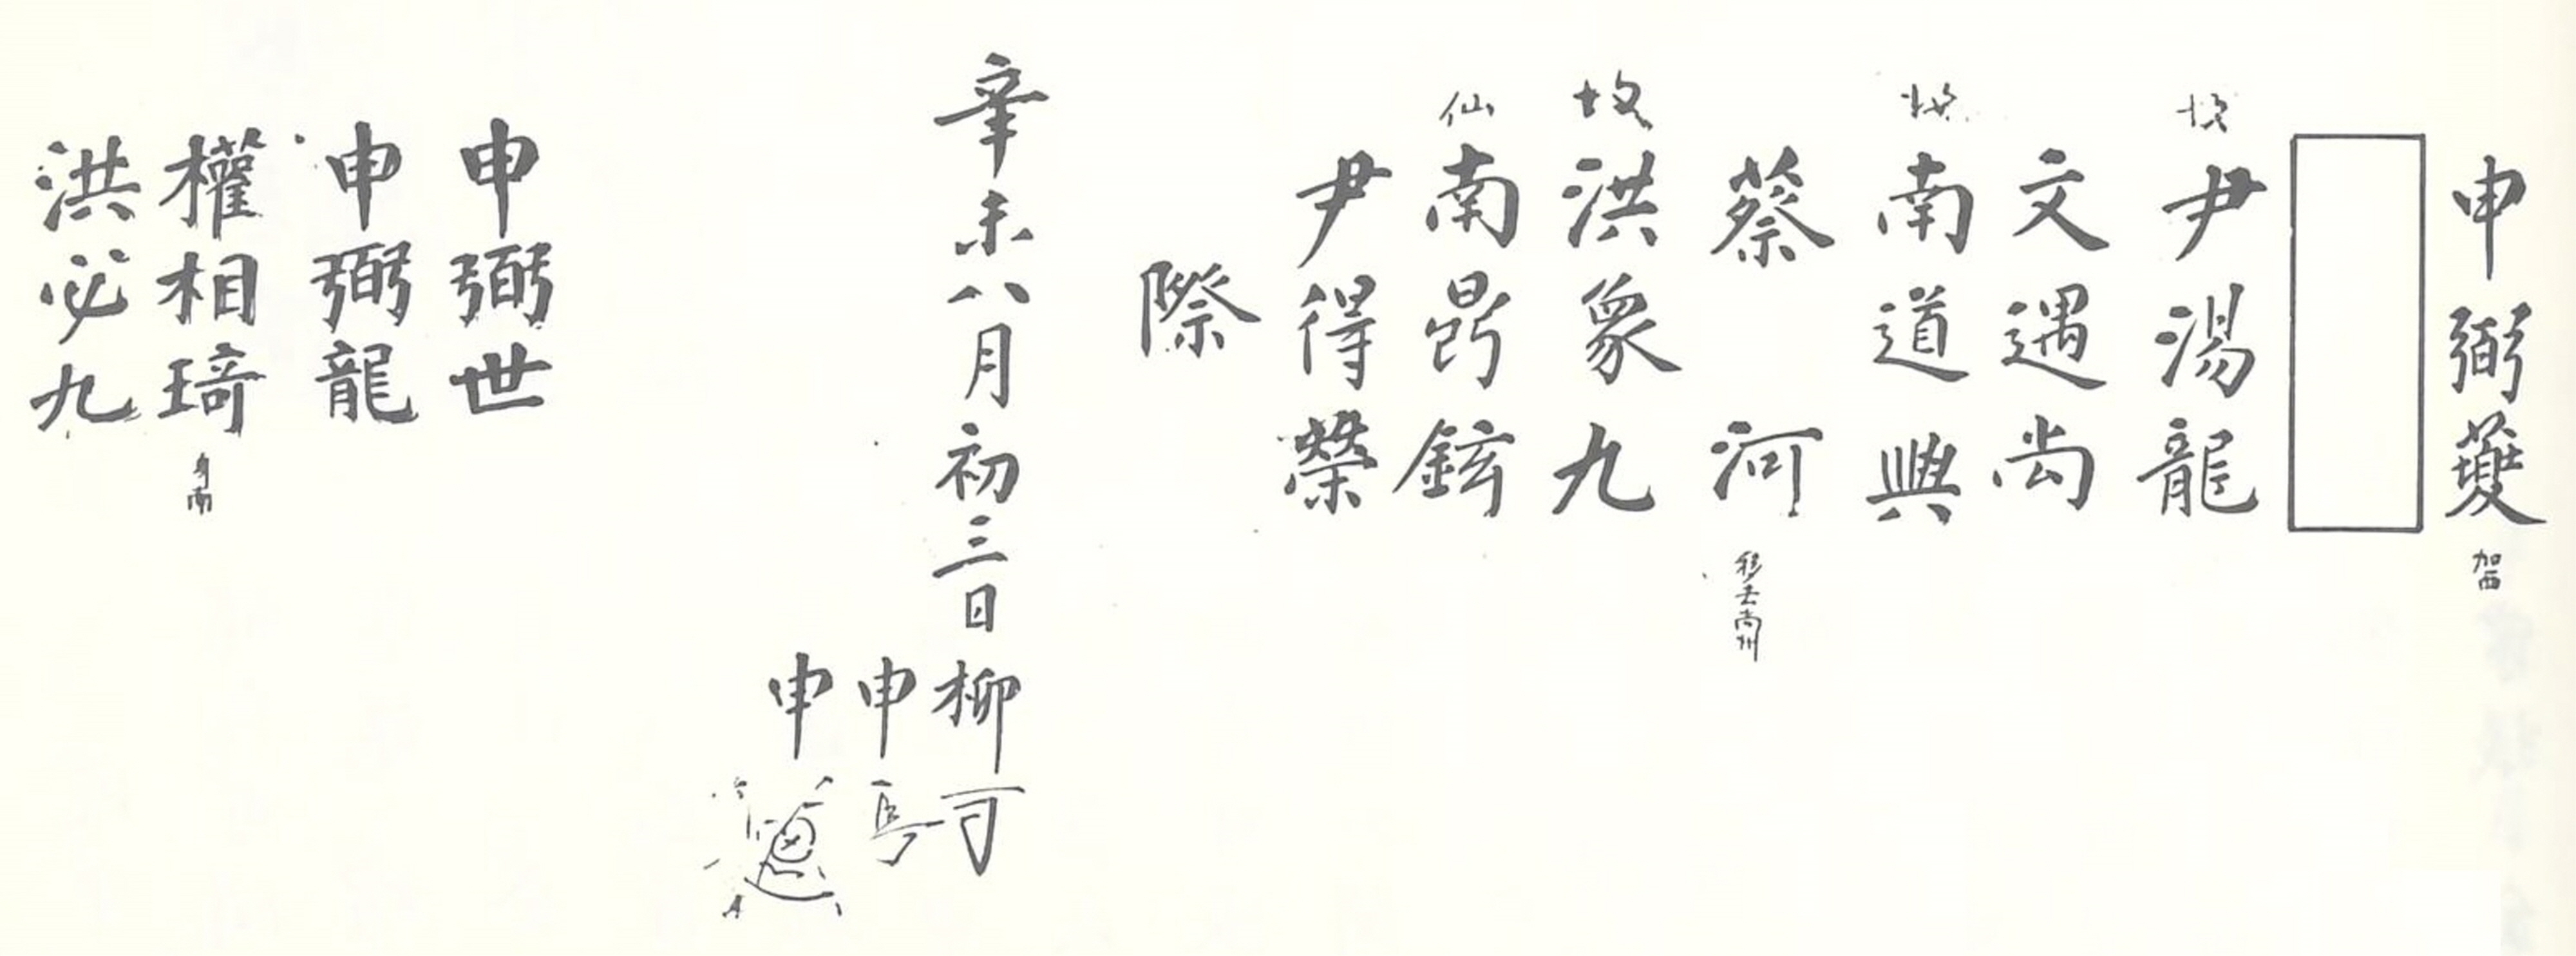 申弼夔 加西
故 尹湯龍
文遇尚
故 南道興
蔡河 移去尚州
故 洪象九
仙 南鼎鉉
尹得榮
際
辛未八月初三日 柳
申
申
申弼世
申弼龍
權相琦
洪必九